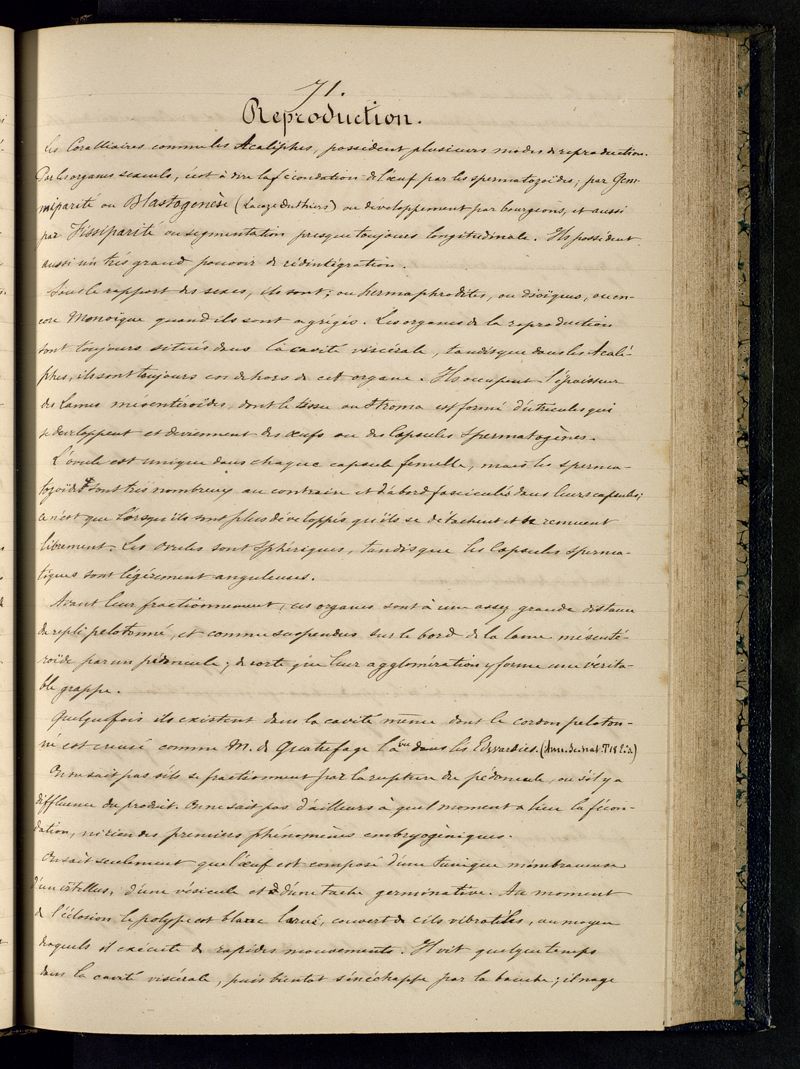 71.
Reproduction.
Les Coralliaires comme les Acalèphes, possèdent plusieurs modes de reproduction.
Par les organes sexuels, c'est à dire la fécondation de l'œuf par les spermatozoïdes; par Gem-
miparité ou Blastogenèse (Lacaze Duthiers) ou développement par bourgeons, et aussi
par Fissiparité ou segmentation presque toujours longitudinale. Ils possèdent
aussi un très grand pouvoir de rédintégration.
Sous le rapport des sexes, ils sont; ou hermaphrodites, ou dioïques, ou en-
core Monoïque quand ils sont agrégés. Les organes de la reproduction
sont toujours situés dans la cavité viscérale, tandis que dans les Acalè-
phes, ils sont toujours en dehors de cet organe. Ils occupent l'épaisseur
des Lames mésentéroïdes, dont le tissu ou Stroma est formé d'utricules qui
se développent et deviennent des œufs ou des Capsules Spermatogènes.
L'ovule est unique dans chaque capsule femelle, mais les sperma-
tozoïdes sont très nombreux au contraire et d'abord fasciculés dans leurs capsules;
ce n'est que lorsqu'ils sont plus développés qu'ils se détachent et se remuent
librement. Les Ovules sont sphériques, tandis que les Capsules sperma-
tiques sont légèrement anguleuses.
Avant leur fractionnement, ces organes sont à une assez grande distance
du repli pelotonné, et comme suspendus sur le bord de la lame mésenté-
roïde par un pédoncule; de sorte que leur agglomération y forme une vérita-
ble grappe.
Quelquefois ils existent dans la cavité même dont le cordon peloton-
né est creusé comme M. de Quatrefage l'a vu dans les Edwardsies. (Ann. Sc. nat. T 18 2.S)
On ne sait pas s'ils se fractionnent par la rupture du pédoncule, ou s'il y a
diffluence du produit. On ne sait pas d'ailleurs à quel moment a lieu la fécon-
dation, ni rien des premiers phénomènes embryogéniques.
On sait seulement que l'œuf est composé d'une tunique membraneuse
d'un vitellus, d'une vésicule et d'une tache germinative. Au moment
de l'éclosion le polype est blanc larvé, couvert de cils vibratiles, au moyen
desquels il exécute de rapides mouvements. Il vit quelque temps
dans la cavité viscérale, puis bientôt s'en échappe par la bouche; il nage